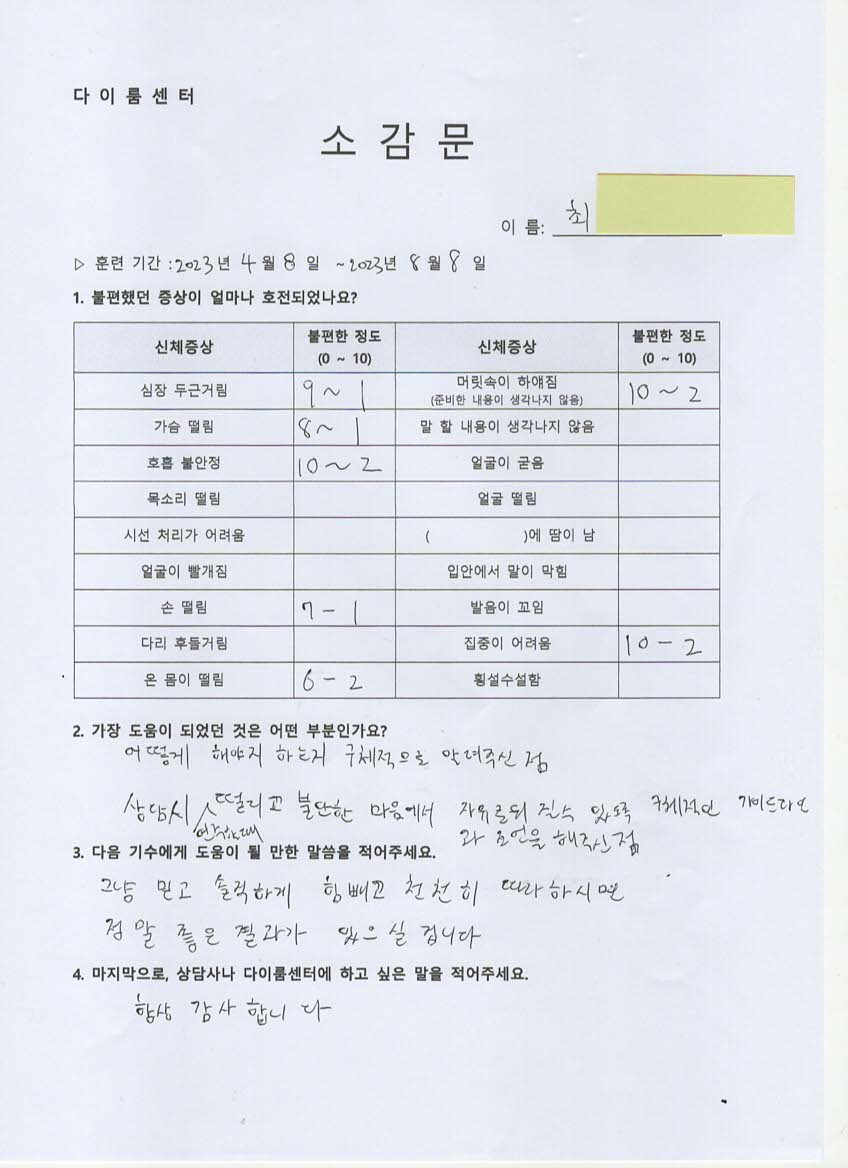 다이룸센터
소 감 문
이 름: 최
▷ 훈련 기간 : 2023년 4월 8일 ~2023년 8월 8일
1. 불편했던 증상이 얼마나 호전되었나요?
신체증상 불편한 정도 (0 ~ 10) 신체증상 불편한 정도 (0 ~ 10)
심장 두근거림 9 ~ 1 머릿속이 하얘짐 (준비한 내용이 생각나지 않음) 10 ~ 2
가슴 떨림 8 ~ 1 말 할 내용이 생각나지 않음
호흡 불안정 10 ~ 2 얼굴이 굳음
목소리 떨림 얼굴 떨림
시선 처리가 어려움 ( )에 땀이 남
얼굴이 빨개짐 입안에서 말이 막힘
손 떨림 7 - 1 발음이 꼬임
다리 후들거림 집중이 어려움 10 - 2
온 몸이 떨림 6 - 2 횡설수설함
2. 가장 도움이 되었던 것은 어떤 부분인가요?
어떻게 해야지 하는지 구체적으로 알려주신 점
상담시 떨리고 불안한 마음에서 자유로워 질수 있도록 구체적인 가이드라인
과 조언을 해주신 점
3. 다음 기수에게 도움이 될 만한 말씀을 적어주세요.
그냥 믿고 솔직하게 힘빼고 천천히 따라하시면
정말 좋은 결과가 있으실 겁니다
4. 마지막으로, 상담사나 다이룸센터에 하고 싶은 말을 적어주세요.
항상 감사합니다